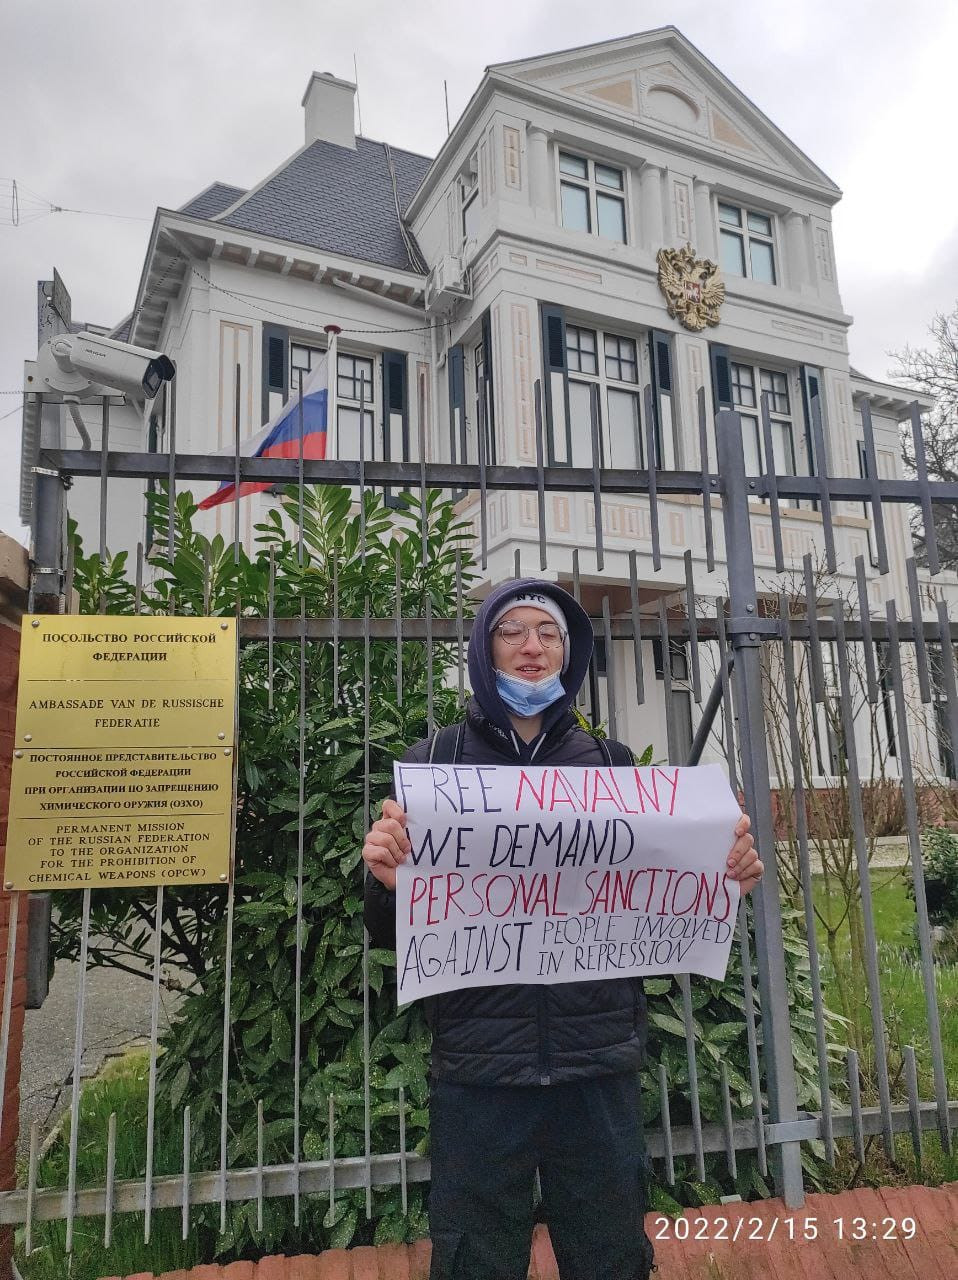 NYC
ПОСОЛЬСТВО РОССИЙСКОЙ
ФЕДЕРАЦИИ
AMBASSADE VAN DE RUSSISCHE
FEDERATIE
ПОСТОЯННОЕ ПРЕДСТАВИТЕЛЬСТВО
РОССИЙСКОЙ ФЕДЕРАЦИИ
ПРИ ОРГАНИЗАЦИИ ПО ЗАПРЕЩЕНИЮ
ХИМИЧЕСКОГО ОРУЖИЯ (ОЗХО)
PERMANENT MISSION
OF THE RUSSIAN FEDERATION
TO THE ORGANIZATION
FOR THE PROHIBITION OF
CHEMICAL WEAPONS (OPCW)
FREE NAVALNY
WE DEMAND
PERSONAL SANCTIONS
AGAINST PEOPLE INVOLVED
IN REPRESSION
2022/2/15 13:29